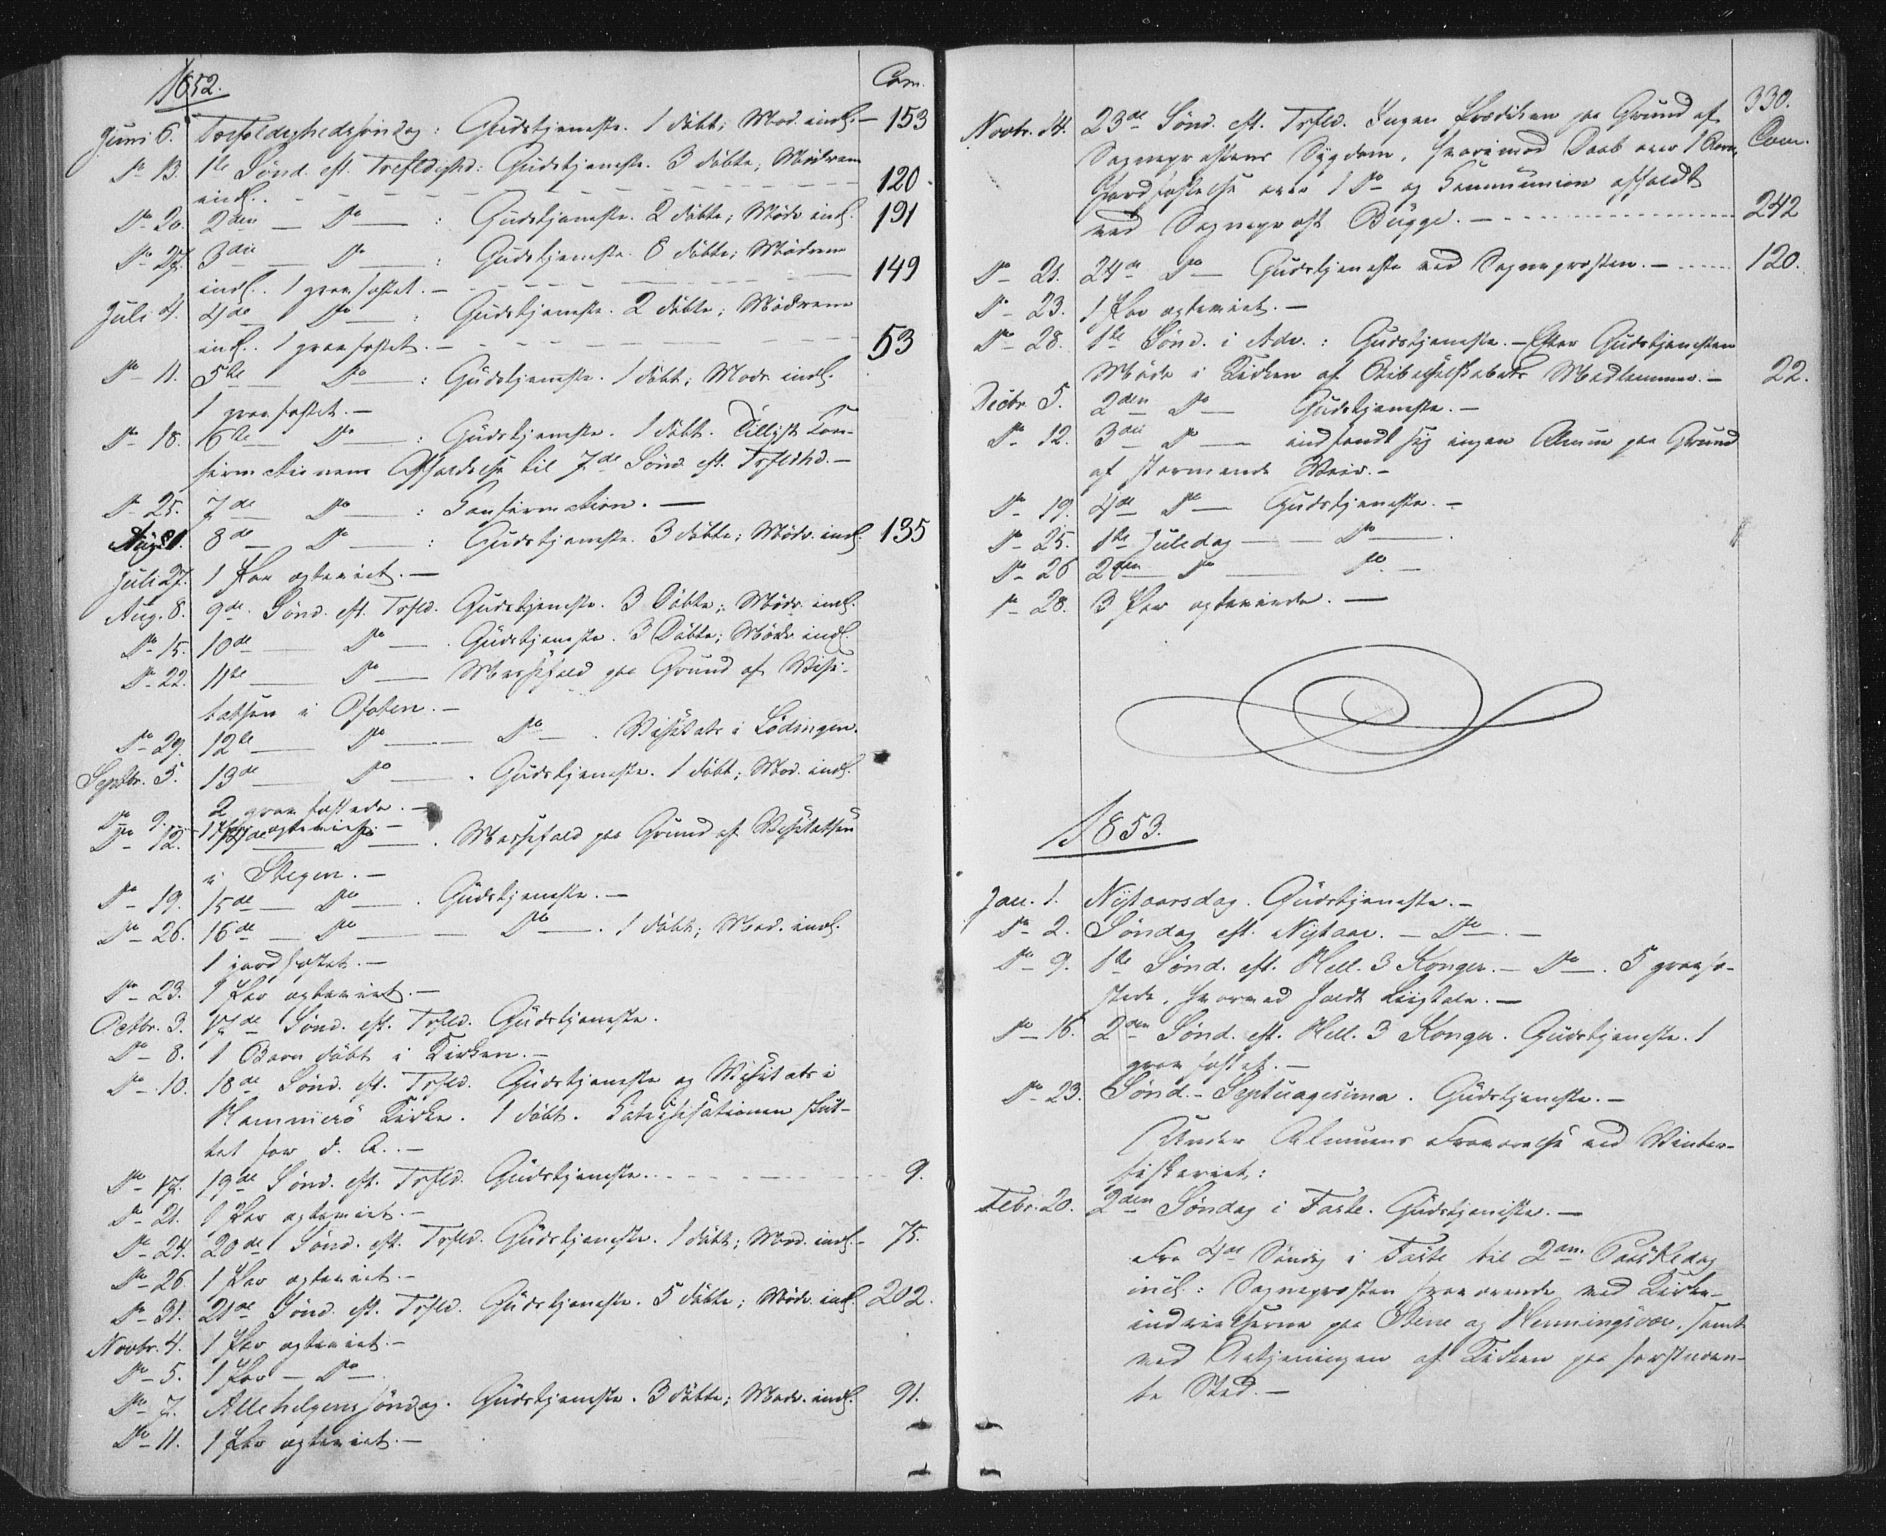 1852.
Com.
Juni 6. Trefoldighedssöndag: Gudstjeneste. 1 döbt; Mod. indl. — 153
Do 13. 1ste Sönd. eft. Trefoldighed: Gudstjeneste. 3 döbte; Mödrene
indl. - - - 120
Do 20. 2den — Do — : Gudstjeneste. 2 döbte; Mödr. indl. 191
Do 27. 3die — Do — : Gudstjeneste. 8 döbte; Mödrene
indl. 1 gravfæstet. — 149
Juli 4. 4de — Do — : Gudstjeneste. 2 döbte; Mödrene
indl. 1 gravfæstet. — 53
Do 11. 5te — Do — : Gudstjeneste. 1 döbt; Modr. indl.
1 gravfæstet. —
Do 18. 6te — Do — : Gudstjeneste. 1 döbt. Tillyst Con-
firmationens Afholdelse til 7de Sönd. eft. Trfldhd. —
Do 25. 7de — Do — : Confirmation. —
Aug. 1. 8de — Do — : Gudstjeneste. 3 döbte; Mödr. indl. 135
Juli 27. 1 Par ægteviet. —
Aug. 8. 9de Sönd. eft. Trfld. Gudstjeneste. 3 Döbte; Mödr. indl.
Do 15. 10de — Do — . Gudstjeneste. 3 Döbte; Mödr. indl.
Do 22. 11te — Do — Messefald paa Grund af Visi-
tatsen i Ofoten. —
Do 29. 12te — Do — Do — . Visitats i Lödingen.
Septbr. 5. 13de — Do — . Gudstjeneste. 1 döbt; Mod. indl.
2 gravfæstede. —
Do 9. 1 Par ægteviet. —
Do 12. 14de — Do — . Messefald paa Grund af Visitatsen
i Stegen. —
Do 19. 15de — Do — . Gudstjeneste. —
Do 26. 16de — Do — Do — . 1 döbt; Mod. indl.
1 jordfæstet. —
Do 23. 1 Par ægteviet. —
Octbr. 3. 17de Sönd. eft. Trfld. Gudstjeneste.
Do 8. 1 Barn döbt i Kirken. —
Do 10. 18de Sönd. eft. Trfld. Gudstjeneste og Visitats i
Hammerö Kirke. 1 döbt. Catechisationen slut-
tet for d. A. —
Do 17. 19de Sönd. eft. Trfld. Gudstjeneste. - - - 9.
Do 21. 1 Par ægteviet. —
Do 24. 20de Sönd. eft. Trfld. Gudstjeneste. 1 döbt; Mod. indl. — 75.
Do 26. 1 Par ægteviet. —
Do 31. 21de Sönd. eft. Trfld. Gudstjeneste. 5 döbte; Mödr. indl. 202.
Novbr. 4. 1 Par ægteviet. —
Do 5. 1 Par — Do —.
Do 7. Allehelgenssöndag. Gudstjeneste. 3 döbte; Mödr. indl. 91.
Do 11. 1 Par ægteviet. —
330.
Com.
Novbr. 14. 23de Sönd. eft. Trfld. Ingen Prædiken paa Grund af
Sognepræstens Sygdom, hvorimod Daab over 1 Barn,
Jordfæstelse over 1 Do og Communion afholdt
ved Sognepræst Bugge. — 242
Do 21. 24de Do — Gudstjeneste ved Sognepræsten. — 120.
Do 23. 1 Par ægteviet. —
Do 28. 1ste Sönd. i Adv. : Gudstjeneste. — Efter Gudstjenesten
Möde i Kirken af Bibelselskabets Medlemmer. — 22.
Decbr. 5. 2den Do — Gudstjeneste. —
Do 12. 3die Do — indfandt sig ingen Almue paa Grund
af stormende Veir. —
Do 19. 4de Do — Gudstjeneste. —
Do 25. 1ste Juledag — Do — .
Do 26 2den Do — Do —
Do 28. 3 Par ægteviede. —
1853.
Jan. 1. Nytaarsdag. Gudstjeneste. —
Do 2. Söndag eft. Nytaar. — Do — . —
Do 9. 1ste Sönd. eft. Hell. 3 Konger. — Do — . 5 gravfæ-
stede, hvorved holdt Liigtale. —
Do 16. 2den Sönd. eft. Hell. 3 Konger. Gudstjeneste. 1
gravfæstet. —
Do 23. Sönd. Septuagesima. Gudstjeneste. —
(Under Almuens Fraværelse ved Vinter-
fiskeriet:
Febr. 20. 2den Söndag i Faste. Gudstjeneste. —
Fra 4de Söndag i Faste til 2den Paaskedag
incl. : Sognepræsten fraværende ved Kirke-
indvielserne paa Stene og Henningsvær, samt
ved Betjeningen af Kirken paa forstnævn-
te Sted. —